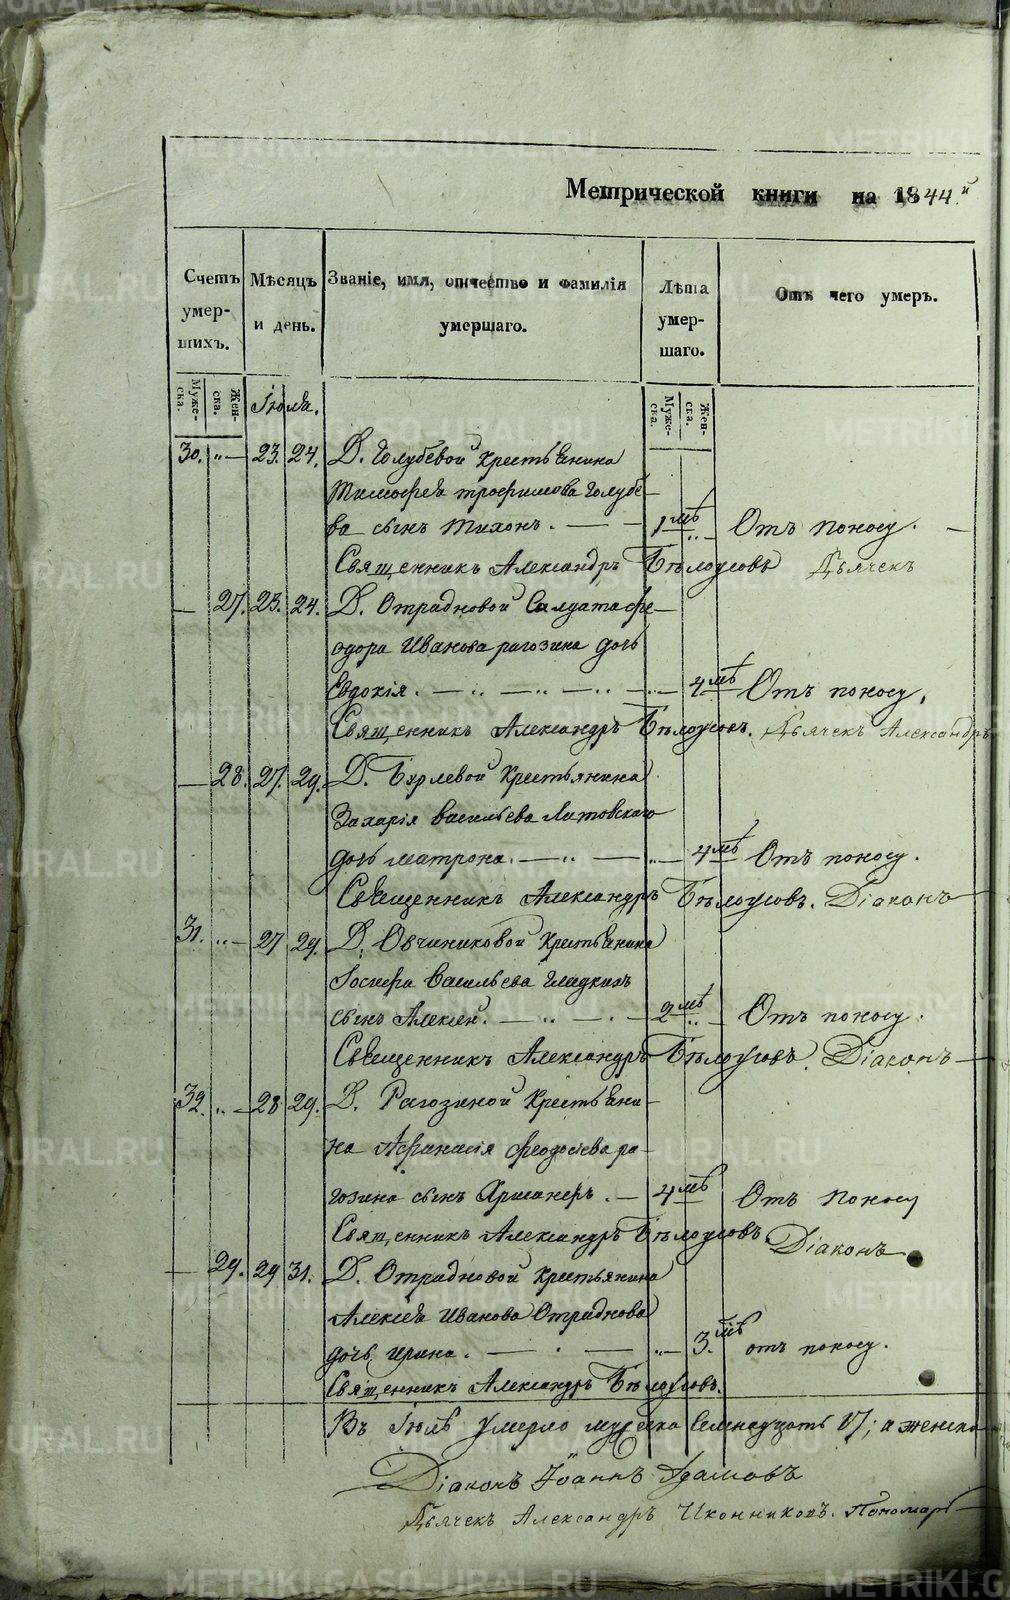 Метрической книги на 1844.й
Счетъ умер- шихъ.
Мѣсяцъ и день.
Званіе, имя, отчество и фамилія умершаго.
Лѣта умер- шаго.
Отъ чего умеръ.
Муже- ска. Жен- ска. Іюля. Муже- ска. Жен- ска.
30. „ — 23. 24. Д. Голубевой крестьянина
Тимофея трофимова Голубе-
ва сынъ Тихонъ. — — 1 мѣ „ — Отъ поносу. —
Священникъ Александръ Бѣлоусовъ Дьячекъ
— 27. 23. 24. Д. Отрадновой Салдата фе-
одора Иванова рагозина дочь
Евдокія. — „ — „ — „ — „ — 4 мѣ Отъ поносу.
Священникъ Александръ Бѣлоусовъ. Дьячекъ Александръ
— 28. 27. 29. Д. Бурлевой Крестьянина
Захарія Васильева Литовскаго
дочь матрона. — „ — „ — 4 мѣ Отъ поносу.
Священникъ Александръ Бѣлоусовъ. Діаконъ
31. „ — 27 29. Д. Овчиниковой крестьянина
Іосифа Васильева Гладкихъ
сынъ Алексей. — „ — . — 2 мѣ „ — Отъ поносу.
Священникъ Александръ Бѣлоусовъ. Діаконъ —
32. „ — 28 29. Д. Рагозиной Крестьяни-
на Афанасія феодосіева ра-
гозина сынъ — 4 мѣ Отъ поносу
Священникъ Александръ Бѣлоусовъ Діаконъ
— 29. 29 31. Д. Отрадновой крестьянина
Алексія Иванова Отраднова
дочь Ирина. — . — „ — 3. мѣ отъ поносу.
Священникъ Александръ Бѣлоусовъ.
Въ Іюлѣ умерло мужеска семнадцать 17; а женска
Діаконъ Іоаннъ Адамовъ
Дьячекъ Александръ Иконниковъ. Пономарь
METRIKI.GASO-URAL.RU